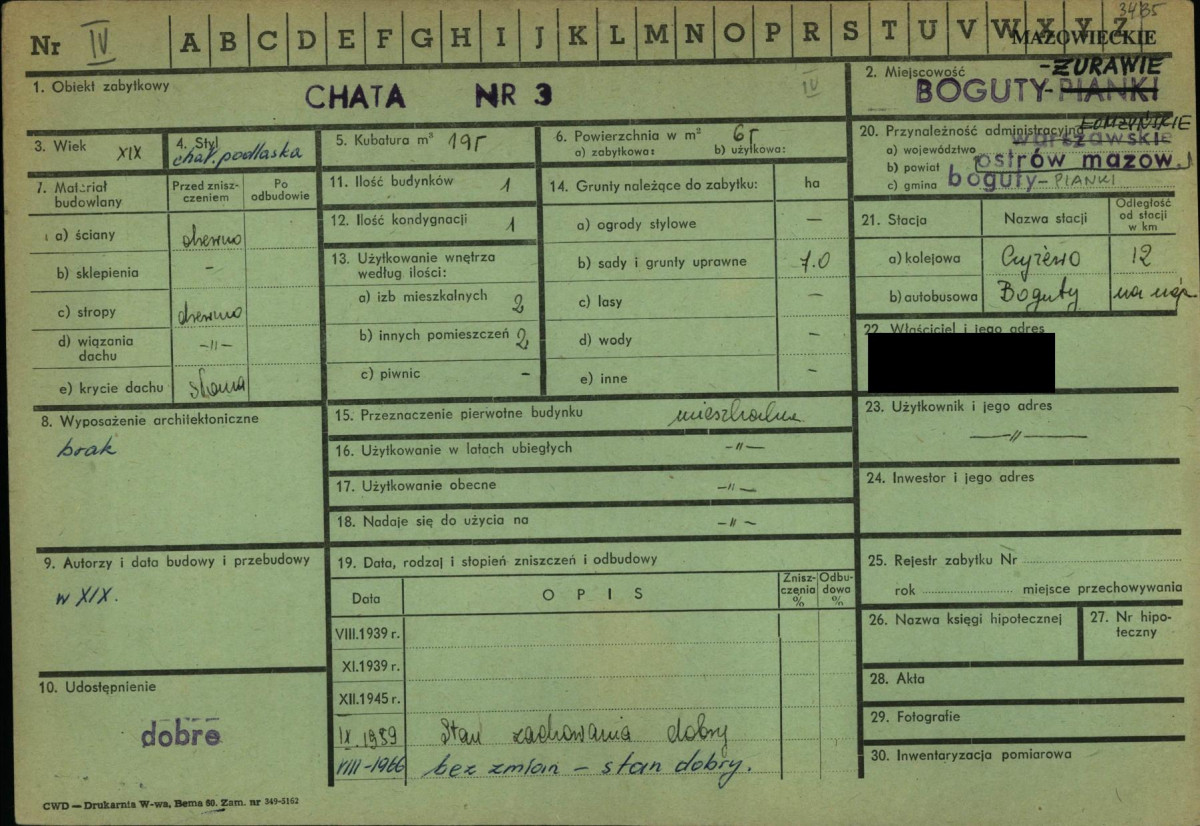 3485
Nr IV A B C D E F G H I J K L M N O P R S T U V W X Y Z
MAZOWIECKIE
1. Obiekt zabytkowy
CHATA NR 3
IV
2. Miejscowość
-ŻURAWIE
BOGUTY-PIANKI
3. Wiek XIX
4. Styl
chał. podlaska
5. Kubatura m³ 195
6. Powierzchnia w m² 65
a) zabytkowa: b) użytkowa:
20. Przynależność administracyjna
ŁOMŻYŃSKIE
a) województwo warszawskie
b) powiat ostrów mazow.
c) gmina boguty-PIANKI
7. Materiał budowlany
Przed zniszczeniem
Po odbudowie
a) ściany drewno
b) sklepienia -
c) stropy drewno
d) wiązania dachu -"-
e) krycie dachu słoma
11. Ilość budynków 1
12. Ilość kondygnacji 1
13. Użytkowanie wnętrza
według ilości:
a) izb mieszkalnych 2
b) innych pomieszczeń 2
c) piwnic -
14. Grunty należące do zabytku: ha
a) ogrody stylowe -
b) sady i grunty uprawne 7.0
c) lasy -
d) wody -
e) inne -
21. Stacja
Nazwa stacji
Odległość od stacji w km
a) kolejowa Czyżewo 12
b) autobusowa Boguty na miejsc.
22. Właściciel i jego adres
8. Wyposażenie architektoniczne
brak
15. Przeznaczenie pierwotne budynku mieszkalne
16. Użytkowanie w latach ubiegłych -"-
17. Użytkowanie obecne -"-
18. Nadaje się do użycia na -"-
23. Użytkownik i jego adres
-"-
24. Inwestor i jego adres
9. Autorzy i data budowy i przebudowy
w XIX.
19. Data, rodzaj i stopień zniszczeń i odbudowy
Data
OPIS
Zniszczenia %
Odbudowa %
VIII.1939 r.
XI.1939 r.
XII.1945 r.
IX.1959 Stan zachowania dobry
VIII-1966 bez zmian - stan dobry.
25. Rejestr zabytku Nr
rok miejsce przechowywania
26. Nazwa księgi hipotecznej
27. Nr hipoteczny
28. Akta
29. Fotografie
30. Inwentaryzacja pomiarowa
10. Udostępnienie
dobre
CWD — Drukarnia W-wa, Bema 60. Zam. nr 349-5162